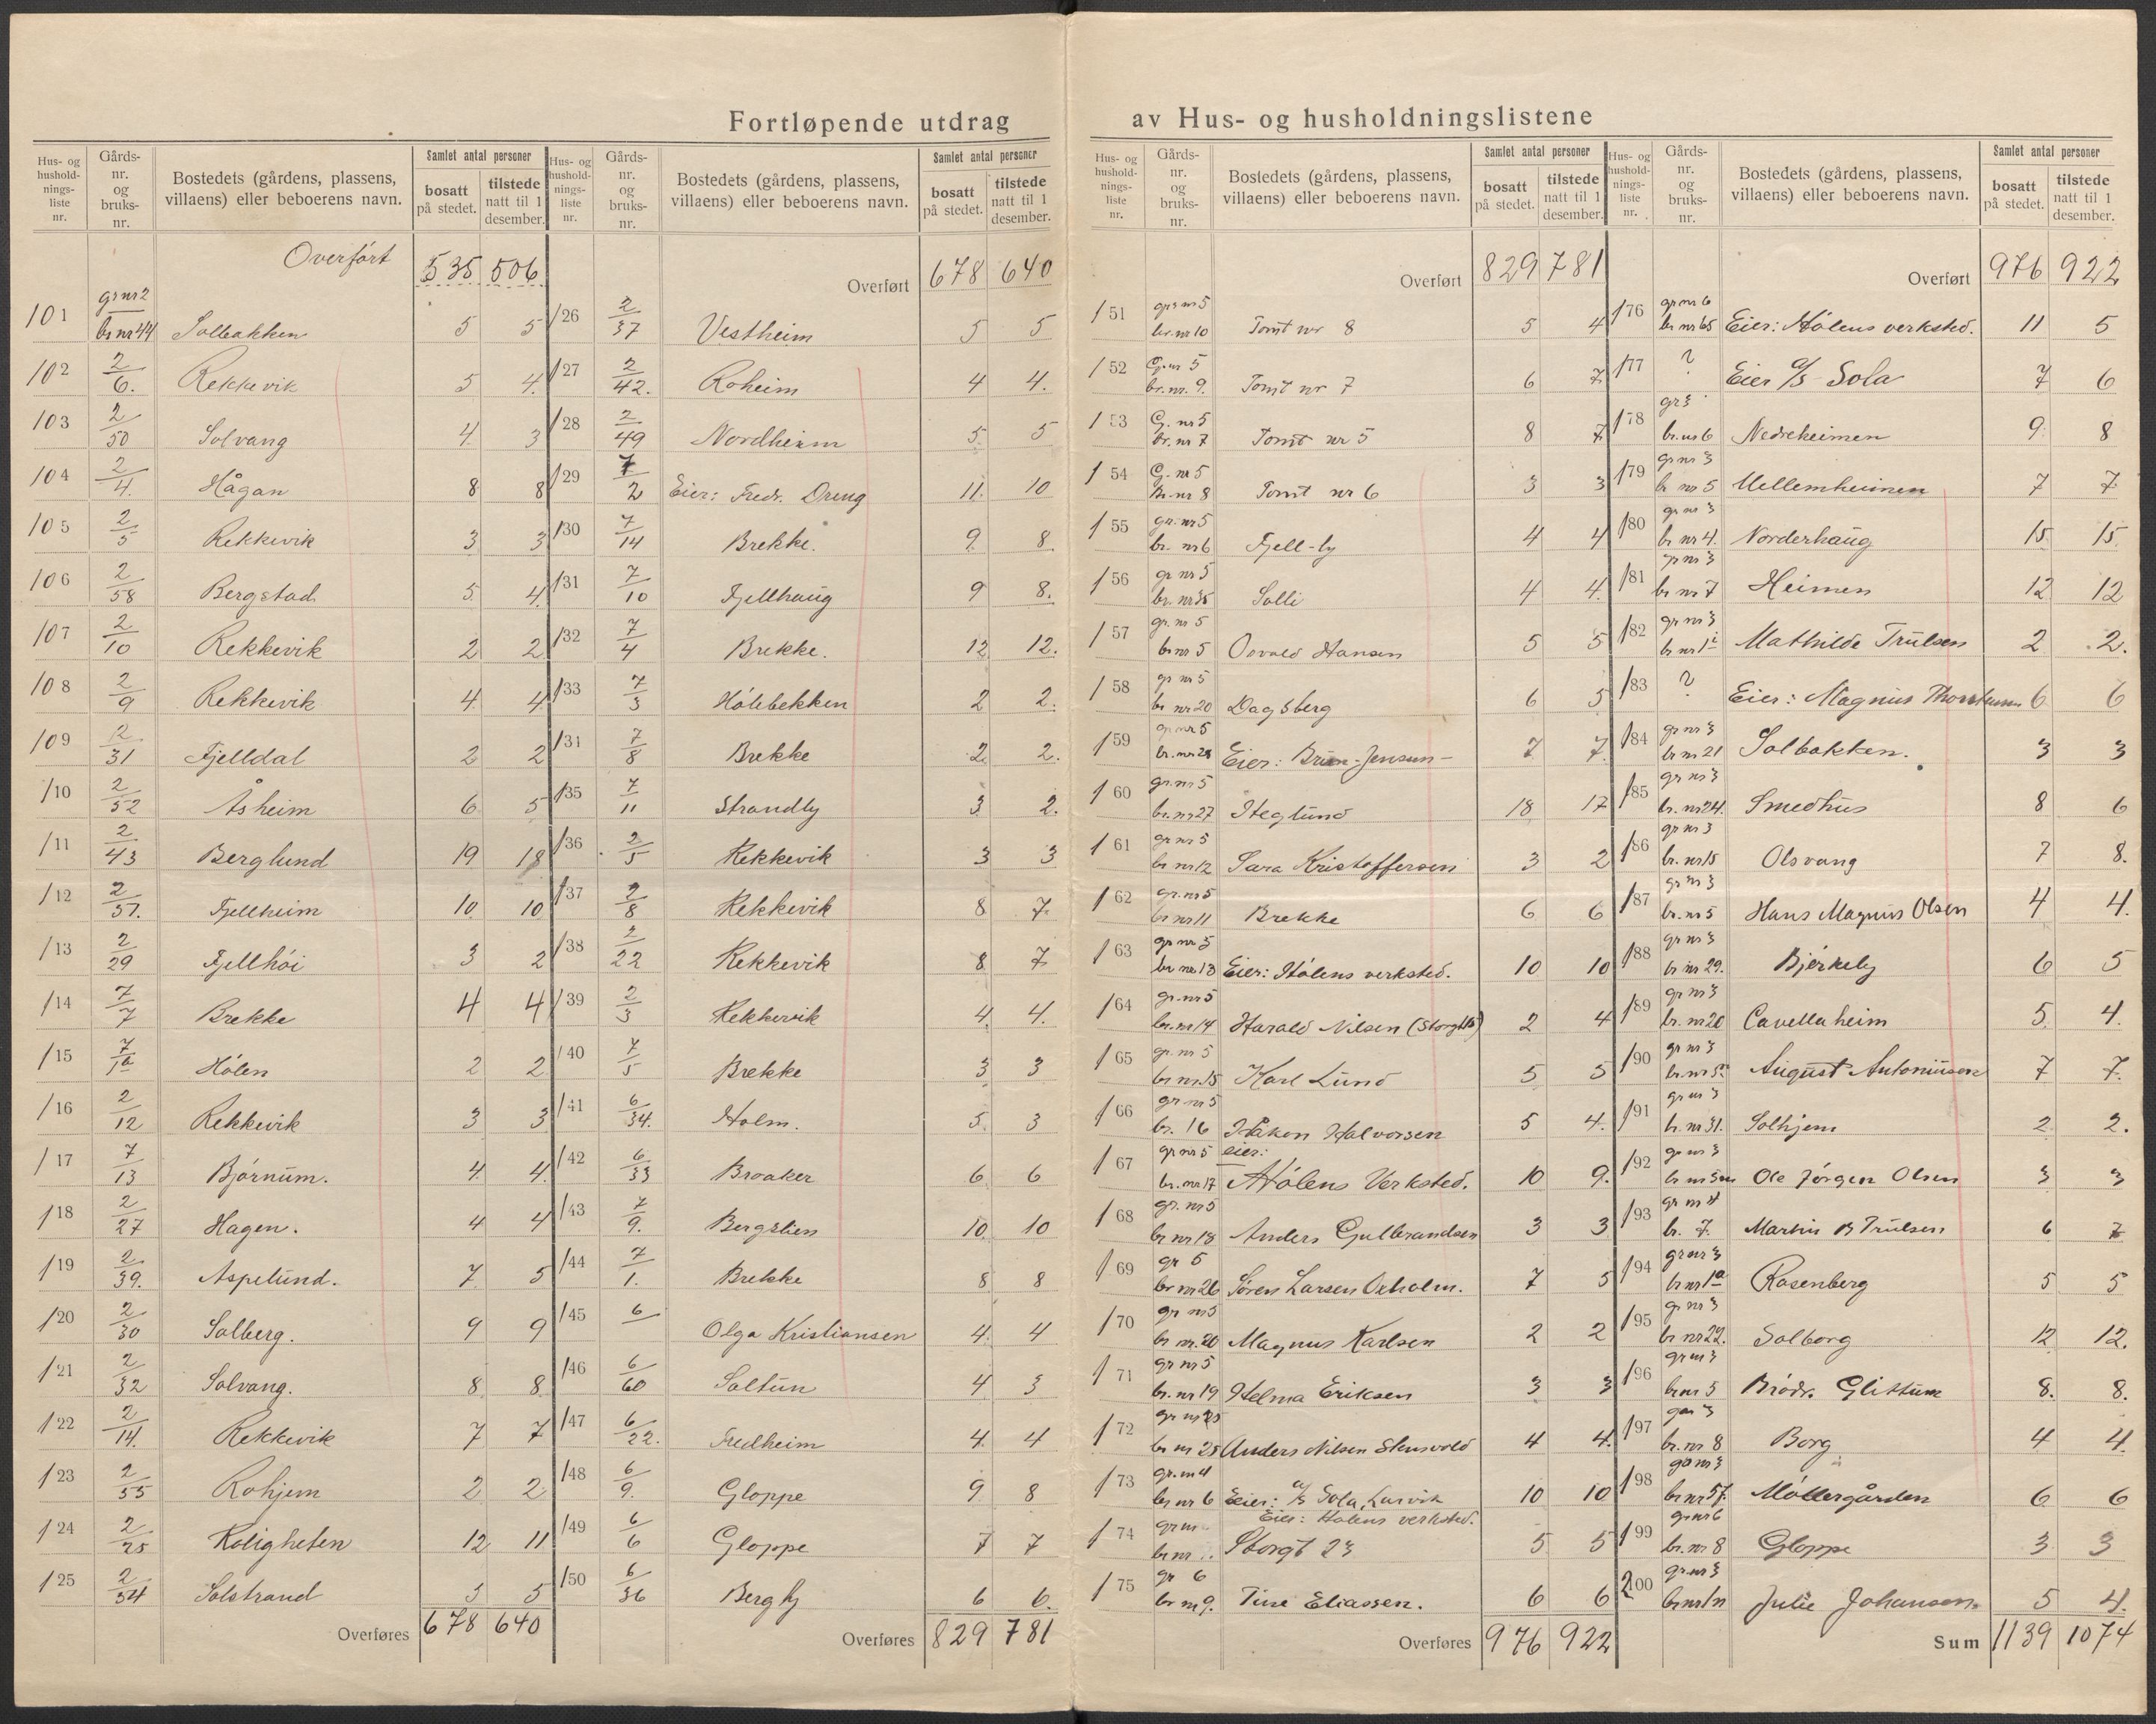 Fortløpende utdrag av Hus- og husholdningslistene
Hus- og husholdningsliste nr. | Gårds-nr. og bruks-nr. | Bostedets (gårdens, plassens, villaens) eller beboerens navn. | Samlet antal personer | bosatt på stedet. | tilstede natt til 1 desember.
Overført 535 506
101 gr nr 2 br nr 44 Solbakken 5 5
102 2/6. Rekkevik 5 4.
103 2/50 Solvang 4. 3
104 2/4. Hågan 8 8
105 2/5 Rekkevik 3 3
106 2/58 Bergstad 5. 4.
107 2/10 Rekkevik 2 2
108 2/9 Rekkevik 4. 4
109 2/31 Fjelldal 2 2
110 2/52 Åsheim 6. 5
111 2/43 Berglund 19 18
112 2/51. Fjellheim 10. 10
113 2/29 Fjellhöi 3 2
114 7/7 Brekke 4 4
115 7/1a Hölen 2 2
116 2/12 Rekkevik 3 3
117 7/13 Bjørnum. 4. 4.
118 2/27 Hagen. 4 4
119 2/39. Aspelund. 7. 5
120 2/30 Solberg. 9 9
121 2/32 Solvang. 8 8
122 2/14. Rekkevik 7 7
123 2/55 Rohjem 2 2
124 2/25 Roligheten 12 11
125 2/54 Solstrand 5 5
Overføres 678 640
Hus- og husholdningsliste nr. | Gårds-nr. og bruks-nr. | Bostedets (gårdens, plassens, villaens) eller beboerens navn. | Samlet antal personer | bosatt på stedet. | tilstede natt til 1 desember.
Overført 678 640
126 2/37 Vestheim 5 5
127 2/42. Roheim 4 4.
128 2/49 Nordheim 5. 5
129 7/2 Eier: Fredr. Dreng 11. 10
130 7/14 Brekke. 9. 8
131 7/10 Fjellhaug 9 8.
132 7/4 Brekke. 12 12.
133 7/3 Hölebekken 2 2.
134 7/8 Brekke 2 2.
135 7/11 Strandly 3 2.
136 2/5 Rekkevik 3 3
137 2/8 Rekkevik 8 7.
138 2/22 Rekkevik 8 7
139 2/3 Rekkevik 4. 4.
140 7/5 Brekke 3 3
141 6/34. Holm. 5. 3
142 6/33 Broaker 6 6
143 7/9. Bergslien 10 10
144 7/1. Brekke 8 8
145 6/ Olga Kristiansen 4. 4
146 6/60 Soltun 4 3
147 6/22. Fredheim 4. 4
148 6/9. Gloppe 9 8
149 6/6 Gloppe 7 7
150 6/36 Bergly 6 6.
Overføres 829 781
Hus- og husholdningsliste nr. | Gårds-nr. og bruks-nr. | Bostedets (gårdens, plassens, villaens) eller beboerens navn. | Samlet antal personer | bosatt på stedet. | tilstede natt til 1 desember.
Overført 829 781
151 gr nr 5 br. nr 10 Tomt nr 8 5 4
152 G. nr 5 br. nr. 9. Tomt nr 7 6 7
153 G. nr 5 br. nr 7 Tomt nr 5 8 7
154 G. nr 5 Br. nr 8 Tomt nr 6 3 3
155 gr. nr 5 br. nr 6 Fjell-ly 4 4
156 gr nr 5 br. nr 35 Solli 4 4.
157 gr. nr 5 br nr 5 Osvald Hansen 5 5
158 gr nr 5 br nr 20 Dagsberg 6 5
159 gr nr 5 br. nr 28 Eier: Brun-Jensen- 7 7.
160 gr. nr 5 br. nr 27 Heglund 18 17
161 gr nr 5 br nr 12 Sara Kristoffersen 3 2
162 gr. nr 5 br nr 11 Brekke 6 6
163 gr nr 5 br nr 13 Eier: Hölens verksted. 10 10
164 gr. nr 5 br. nr 14 Harald Nilsen 2 4
165 gr. nr 5 br nr. 15 Karl Lund 5 5
166 gr nr 5 br. 16 Håkon Halvorsen 5 4.
167 gr nr 5 br. nr 17 eier: A/S Hölens Verksted. 10 9.
168 gr. nr 5 br nr 18 Anders Gulbrandsen 3 3
169 gr 5 br nr 26 Søren Larsen Oxholm. 7 5
170 gr nr 5 br nr. 20 Magnus Karlsen 2 2
171 gr nr 5 br. nr 19 Helma Eriksen 3 3
172 gr nr 5 br nr 25 Anders Nilsen Stensvold 4 4.
173 gr. nr 4 br nr 6 Eier: A/S Sola, Larvik 10 10
174 gr nr br nr .. Eier: Holens verksted. Storgt 23 5 5
175 gr 6 br nr 9. Tine Eliassen. 6 6
Overføres 976 922
Hus- og husholdningsliste nr. | Gårds-nr. og bruks-nr. | Bostedets (gårdens, plassens, villaens) eller beboerens navn. | Samlet antal personer | bosatt på stedet. | tilstede natt til 1 desember.
Overført 976 922
176 gr nr 6 br nr 65 Eier: A/S Hölens verksted. 11 5
177 ? Eier A/S Sola 7 6
178 gr 3 br. nr 6 Nedreheimen 9 8
179 gr nr 3 br nr 5 Mellemheimen 7 7
180 gr nr 3 br nr 4. Norderhaug 15 15
181 gr nr 3 br nr 7 Heimen 12 12
182 gr nr 3 br nr 1 Mathilde Trulsen 2 2.
183 ? Eier: Magnus 6 6
184 gr nr 3 br nr 21 Solbakken. 3 3
185 gr nr 3 br. nr 24. Smedhus 8 6
186 gr nr 3 br. nr 15 Olsvang 7 8.
187 gr nr 3 br. nr 5 Hans Magnus Olsen 4 4.
188 gr nr 3 br nr 29. Bjerkely 6 5
189 gr nr 3 br. nr 20 Cavellaheim 5. 4.
190 gr nr 3 br. nr 5 August Antoniusen 7 7.
191 gr nr 3 br. nr 31. Solhjem 2 2.
192 gr nr 3 br nr Ole Jörgen Olsen 3 3
193 gr nr 4 br. 7. Martin B Trulsen 6 7
194 gr nr 3 br nr 1a Rosenberg 5 5
195 gr nr 3 br nr 22. Solborg 12 12.
196 gr nr 3 br nr 5 Brödr. Glittum 8. 8.
197 gr 3 br. nr 8 Borg 4 4
198 gr nr 3 br nr 57. Möllergården 6 6
199 gr nr 6 br. nr 8 Gloppe 3 3
200 gr nr 3 br nr 1n Julie Johansen. 5 4.
Sum 1139 1074